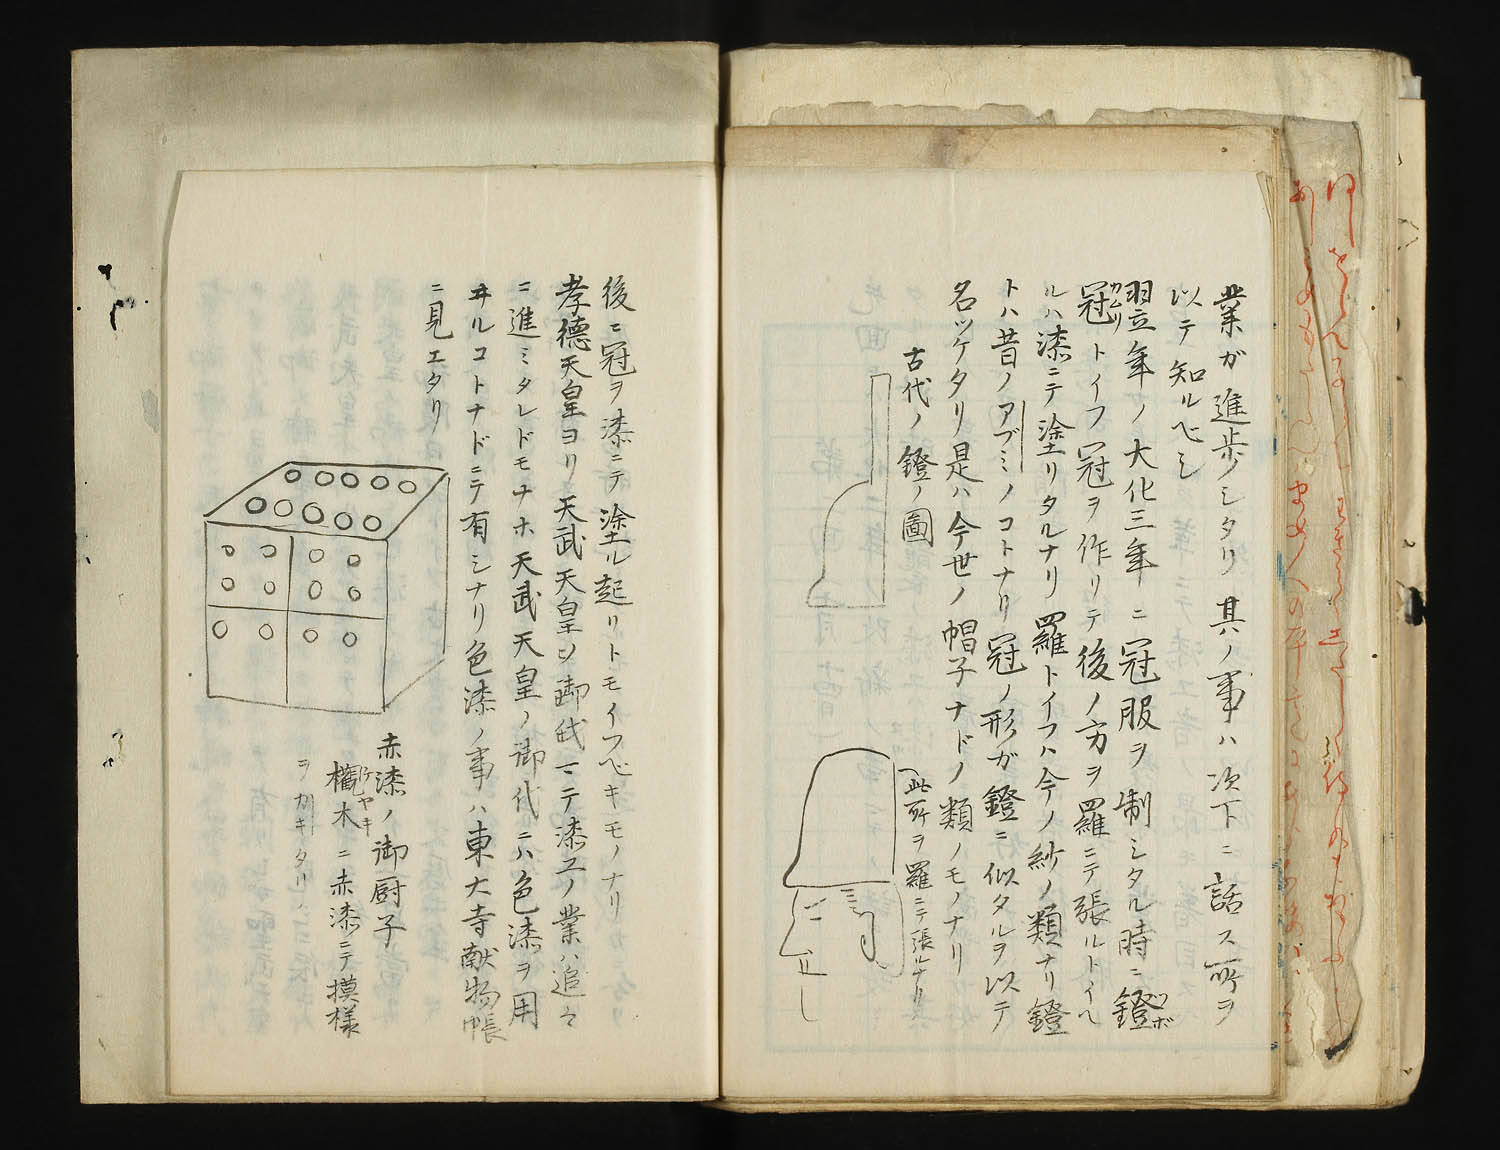 業ガ進歩シタリ其ノ事ハ次下ニ話ス所ヲ
以テ知ルベシ
翌年ノ大化三年ニ冠服ヲ制シタル時ニ鐙
ツボ
冠トイフ冠ヲ作リテ後ノ方ヲ羅ニテ張ルトイヘ
カムリ
ルハ漆ニテ塗リタルナリ羅トイフハ今ノ紗ノ類ナリ鐙
トハ昔ノアブミノコトナリ冠ノ形ガ鐙ニ似タルヲ以テ
名ツケタリ是ハ今世ノ帽子ナドノ類ノモノナリ
古代ノ鐙ノ圖
此所ヲ羅ニテ張ルナリ
後ニ冠ヲ漆ニテ塗ル起リトモイフベキモノナリ
孝德天皇ヨリ天武天皇ノ御代マテ漆工ノ業ハ追々
ニ進ミタレドモナホ天武天皇ノ御代ニハ色漆ヲ用
ヰルコトナドニテ有シナリ色漆ノ事ハ東大寺献物帳
ニ見エタリ
赤漆ノ御厨子
欟木ニ赤漆ニテ摸様
ケヤキ
ヲカキタリ